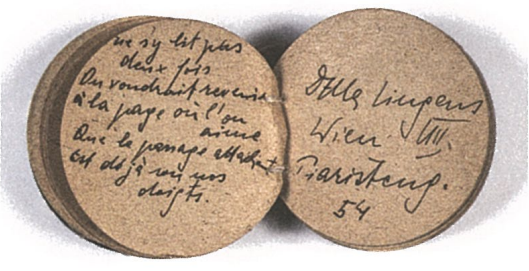 ne s'y lit pas
deux fois
On voudrait revenir
à la page où l'on
aime
Que le passage attachant
est déjà sous nos
doigts.
Ella Lingens
Wien VIII.
Piaristeng.
54